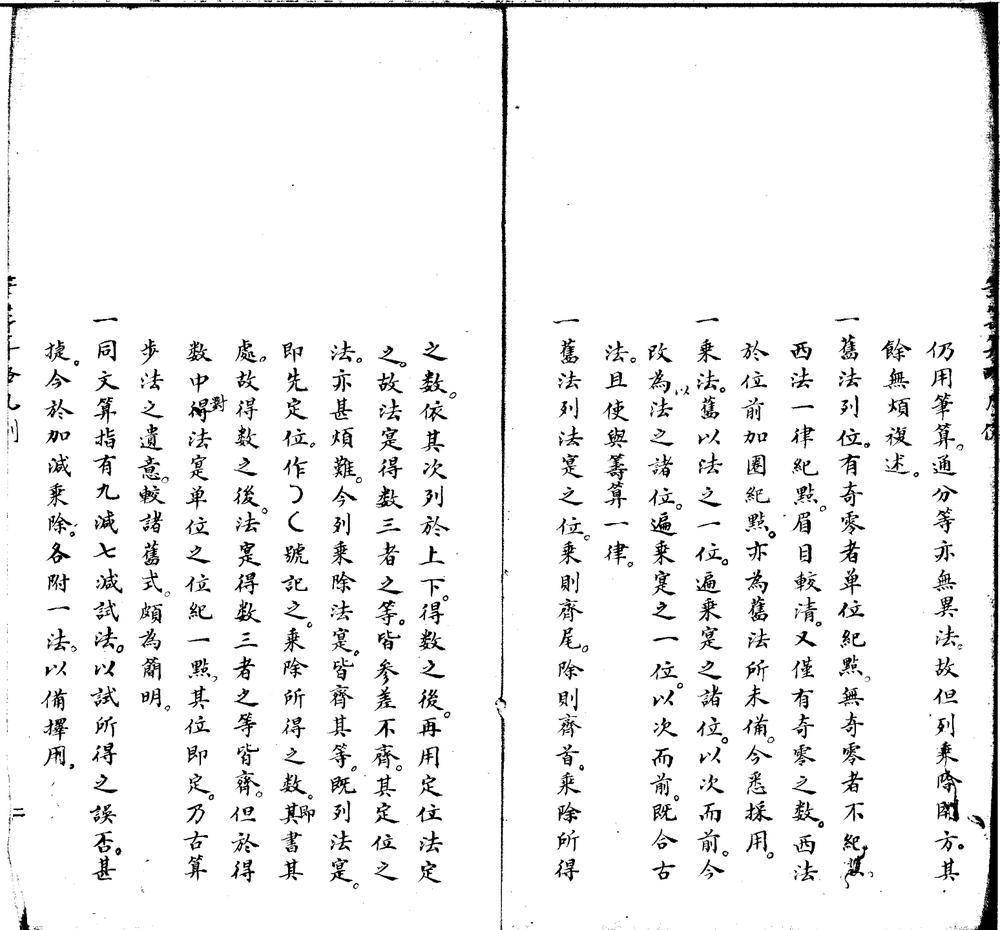 仍用筆算。通分等亦無異法。故但列乘除開方。其
餘無煩複述。
一舊法列位。有奇零者单位紀點。無奇零者不紀。
西法一律紀點。眉目較清。又僅有奇零之数。西法
於位前加圈紀點。亦為舊法所未備。今悉採用。
一乘法。舊以法之一位。遍乘寔之諸位。以次而前。今
改為以法之諸位。遍乘寔之一位。以次而前。既合古
法。且使與籌算一律。
一舊法列法寔之位。乘則齊尾。除則齊首。乘除所得
之数。依其次列於上下。得数之後。再用定位法定
之。故法寔得数三者之等。皆参差不齊。其定位之
法。亦甚煩難。今列乘除法寔。皆齊其等。既列法寔。
即先定位。作㇁㇃號記之。乘除所得之数。即書其
處。故得数之後。法寔得数三者之等皆齊。但於得
数中對法寔单位之位紀一點。其位即定。乃古算
步法之遺意。較諸舊式。頗為簡明。
一同文算指有九减七减試法。以試所得之誤否。甚
捷。今於加减乘除。各附一法。以備擇用。
二